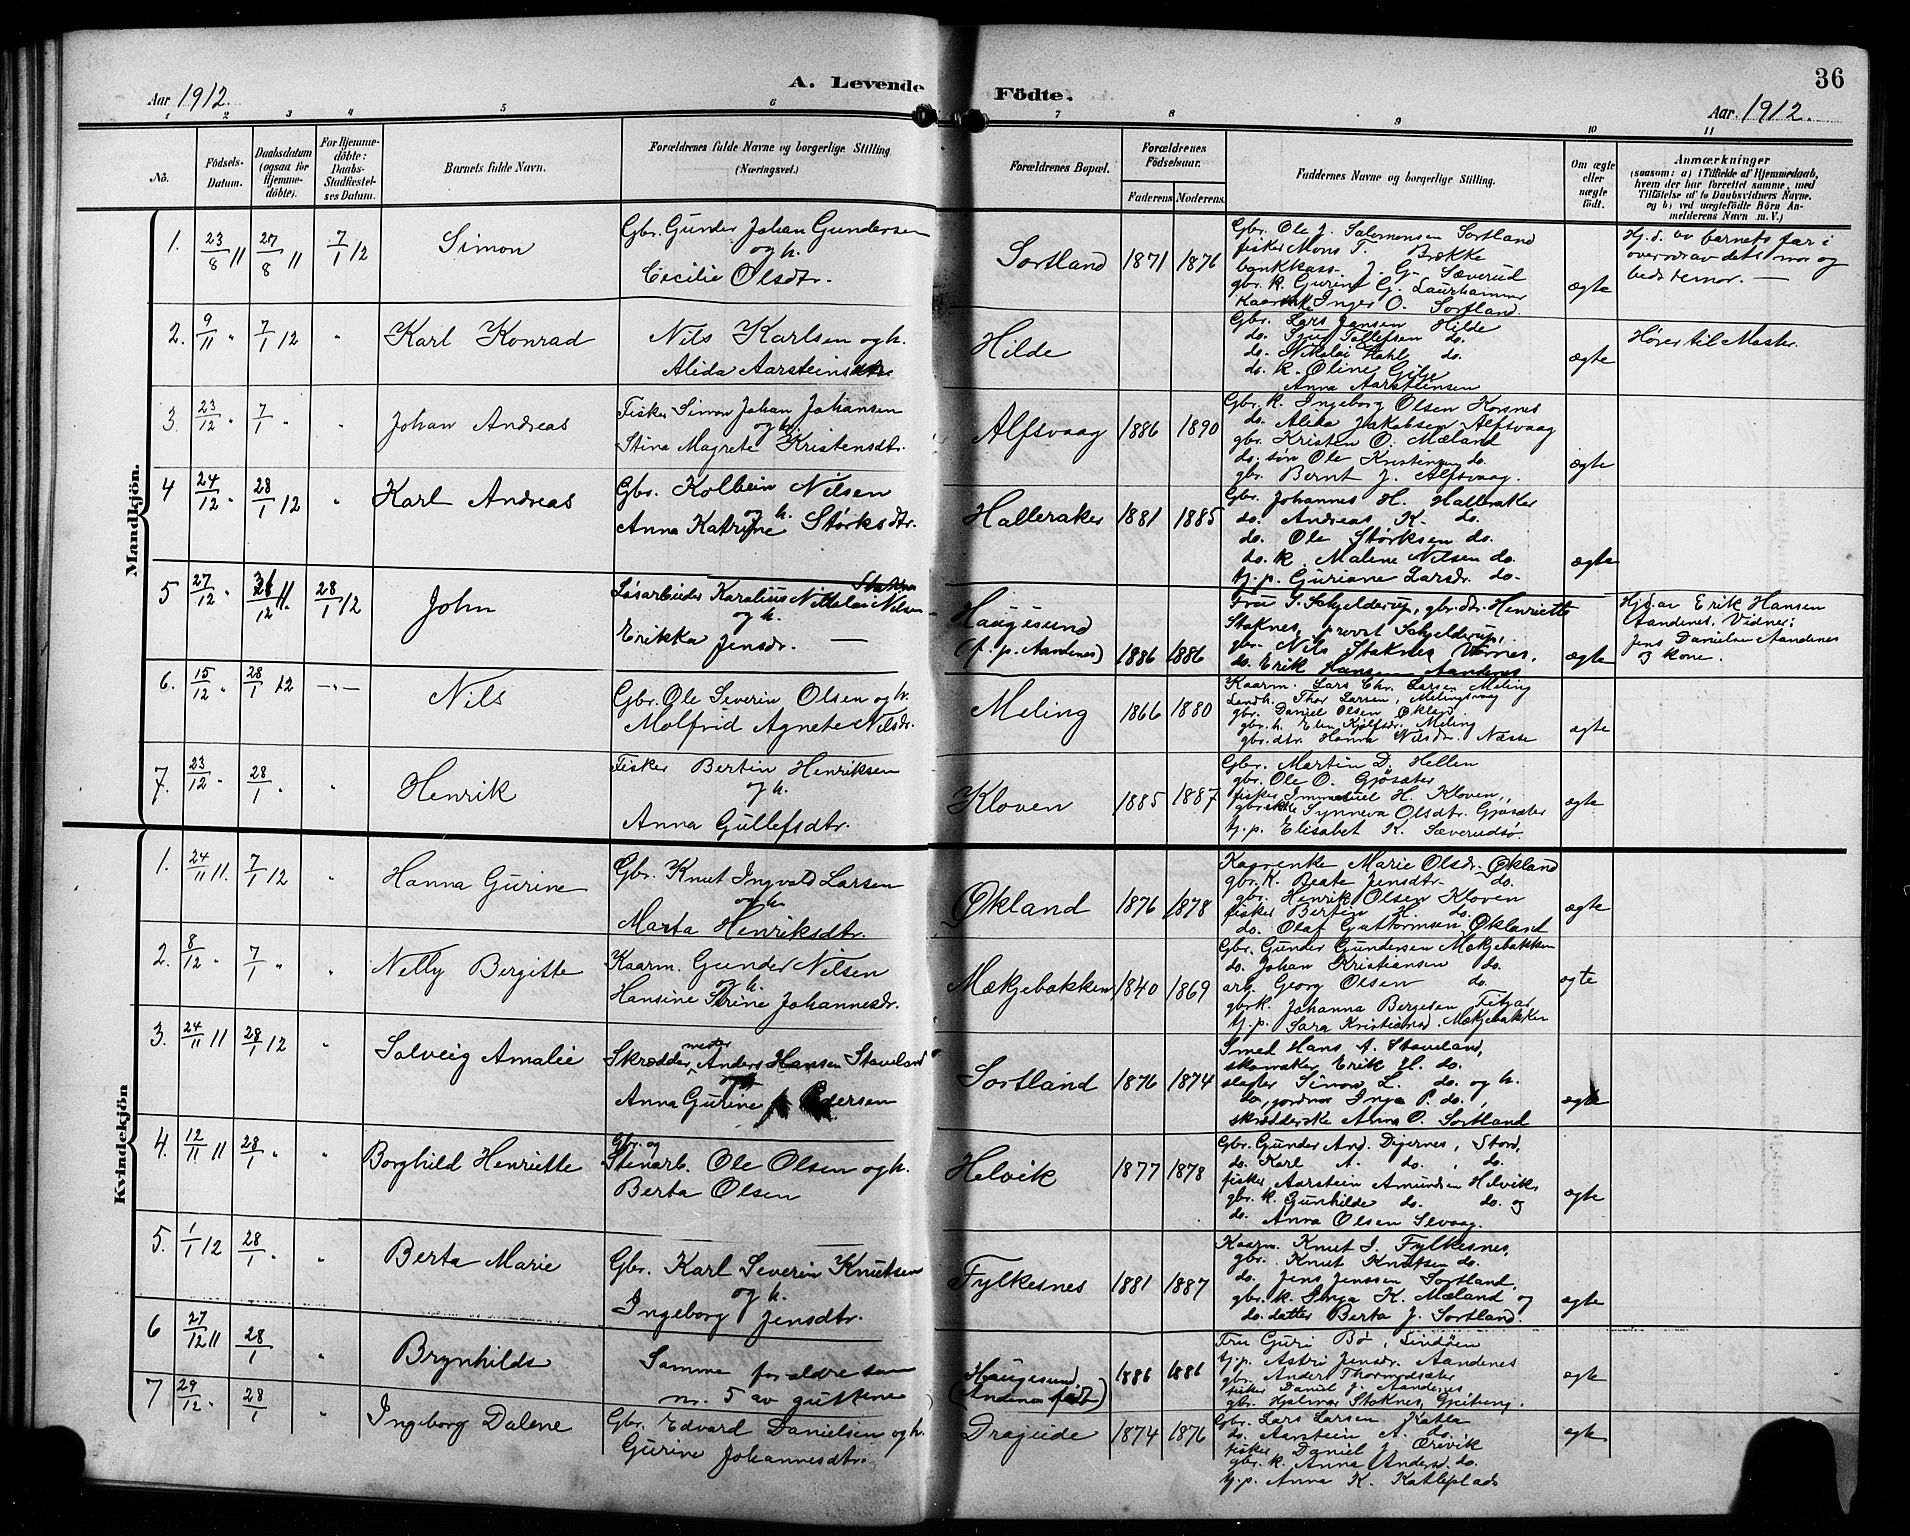 36
Aar 1912.
A. Levende Födte.
Aar 1912.
1 2 3 4 5 6 7 8 9 10 11
No.
Födsels-Datum.
Daabsdatum (ogsaa for Hjemme-döbte).
For Hjemme-döbte: Daabs-Stadfæstel-ses Datum.
Barnets fulde Navn.
Forældrenes fulde Navne og borgerlige Stilling.
(Næringsvei.)
Forældrenes Bopæl.
Forældrenes Födselsaar.
Faderens Moderens
Faddernes Navne og borgerlige Stilling.
Om ægte eller uægte födt.
Anmærkninger
(saasom: a) i Tilfælde af Hjemmedaab,
hvem der har forrettet samme, med
Tilföielse af to Daabsvidners Navne,
og b) ved uægtefödte Börn An-
melderens Navn m. V.)
Mandkjön.
1. 23/8 11 27/8 11 7/1 12 Simon
Gbr. Gunder Johan Gundersen
og h.
Cecilie Olsdtr.
Sortland 1871 1876
Gbr. Ole J. Salomonsen Sortland
fisker Mons T. Brække
bankkass. J. G. Sæverud
gbr. k. Gurine G. Laurhammer
Inger O. Sortland.
ægte
Hj.d. av barnets far i
overvær av dets mor og
bedstemor. —
2. 9/11 " 7/1 12 " Karl Konrad
Nils Karlsen og h.
Alida Aarsteinsdtr
Hilde
Gbr. Lars Jensen Hilde
do. Sjur Tollefsen do.
do. Nikolai Dahl do.
do. k. Oline Gilje
Anna Aarsteinsen
ægte
Hører til Master.
3. 23/12 " 7/1 " " Johan Andreas
Fisker Simon Johan Johansen
og h.
Stina Magrete Kristensdtr.
Alfsvaag 1886 1890
Gbr. k. Ingeborg Olsen Korsnes
do. Alida Jakobsen Alfsvaag
gbr. Kristen O. Mæland
do. søn Ole Kristensen do.
gbr. Bernt J. Alfsvaag.
ægte
4 24/12 " 28/1 12 " Karl Andreas
Gbr. Kolbein Nilsen
og h.
Anna Katrine Størksdtr.
Halleraker 1881 1885
Gbr. Johannes H. Halleraker
do. Andreas K. do.
do. Ole Størksen do.
do. k. Malene Nilsen do.
tj. p. Guriane Larsdr. do.
ægte
5 27/12 " 31/12 11. 28/1 12 John
Løsarbeider Karalius Nikolai Nilsen
og h.
Erikka Jensdr. —
Haugesund
(f. p. Aandenes) 1886 1886
Fru S. Schjelderup, gbr. dtr. Henriette
Stoknes, provst Schjelderup,
gbr. Nils Stoknes
do. Erik Hansen Aandenes
ægte
Hjd. av Erik Hansen
Aandenes. Vidner:
Jens Danielsen Aandenes
og kone.
6. 15/12 " 28/1 12 —"— Nils
Gbr. Ole Severin Olsen og h.
Molfrid Agnete Nilsdr.
Meling 1866 1880
Kaarm. Lars Chr. Larsen Meling
Landh. Thor Larsen, Melingsvaag
gbr. Daniel Olsen Økland
gbr. h. Elen Kjølfsdr. Meling
gbr. dtr. Hanna Nilsdr. Næsse
ægte
7. 23/12 " 28/1 " " Henrik
Fisker Bertin Henriksen
og h.
Anna Gullefsdtr.
Kloven 1885 1887
Gbr. Martin D. Hellen
gbr. Ole O. Gjøsæter
fisker Immanuel H. Kloven,
Synneva Olsdtr. Gjøsæter
tj. p. Elisabet K. Sæverudsø.
ægte
Kvindekjön
1. 24/11 11. 7/1 12 " Hanna Gurine
Gbr. Knut Ingvald Larsen
og h.
Marta Henriksdtr.
Økland 1876 1878
Kaarenke Marie Olsdr. Økland
gbr. k. Beate Jensdtr. do.
gbr. Henrik Olsen Kloven
fisker Bertin H. do.
do. Olaf Guttormsen Økland
ægte
2. 8/12 " 7/1 " " Nelly Bergitte
Kaarm. Gunder Nilsen
og h.
Hansine Serine Johannesdr.
Mækjebakken 1840 1869
Gbr. Gunder Gundersen Mækjebakken
do. Johan Kristiansen do.
arb. Georg Olsen do.
gbrk. Johanna Bergesen Fitjar
tj. p. Sara Kristians. Mækjebakken
ægte
3. 24/11 11 28/1 12 " Solveig Amalie
Skræddermester Anders Hansen Staveland
og h.
Anna Gurine Pedersen
Sortland 1876 1874
Smed Hans A. Staveland,
skomaker Erik H. do.
slagter Simon L. do. og h.
jordmor Inga P. do.,
skrædderske Anna O. Sortland
ægte
4. 12/11 11 28/1 " " Borghild Henriette
Gbr. og
Stenarb. Ole Olsen og h.
Berta Olsen
Helvik 1877 1878
Gbr. Gunder And. Digernes, Stord,
do. Karl A. do., do.
fisker Aarstein Amundsen Helvik,
gbr. k. Gunhilde do. do. og
do. Anna Olsen Sevaag.
ægte
5. 1/1 12 28/1 " " Berta Marie
Gbr. Karl Severin Knutsen
og h.
Ingeborg Jensdtr.
Fylkesnes 1881 1887
Kaarm. Knut I. Fylkesnes,
gbr. Knut Knutsen do.
do. Jens Jenssen Sortland,
gbr. k. Inga K. Mæland og
do. datter Berta J. Sortland.
ægte
6 27/12 11 28/1 " Brynhilds
Samme forældre som
nr. 5 av guttene
Haugesund
(Andenes født) 1886 1886
Fru Guri Bø, Lindøen
tj. p. Astri Jensdr. Aandenes
gbr. Anders Thormodsæter
fisker Daniel J. Aandenes
gbr. Hjalmar Stoknes,
ægte
7 29/12 " 28/1 " Ingeborg Dalene
Gbr. Edvard Danielsen og h.
Gurine Johannesdtr.
Drageide 1874 1876
Gbr. Lars Larsen Katla
do. Aarstein A. do.
fisker Daniel J. Ørevik
gbr. k. Anna Anders. do.
tj. p. Anna K. Katleplads
ægte